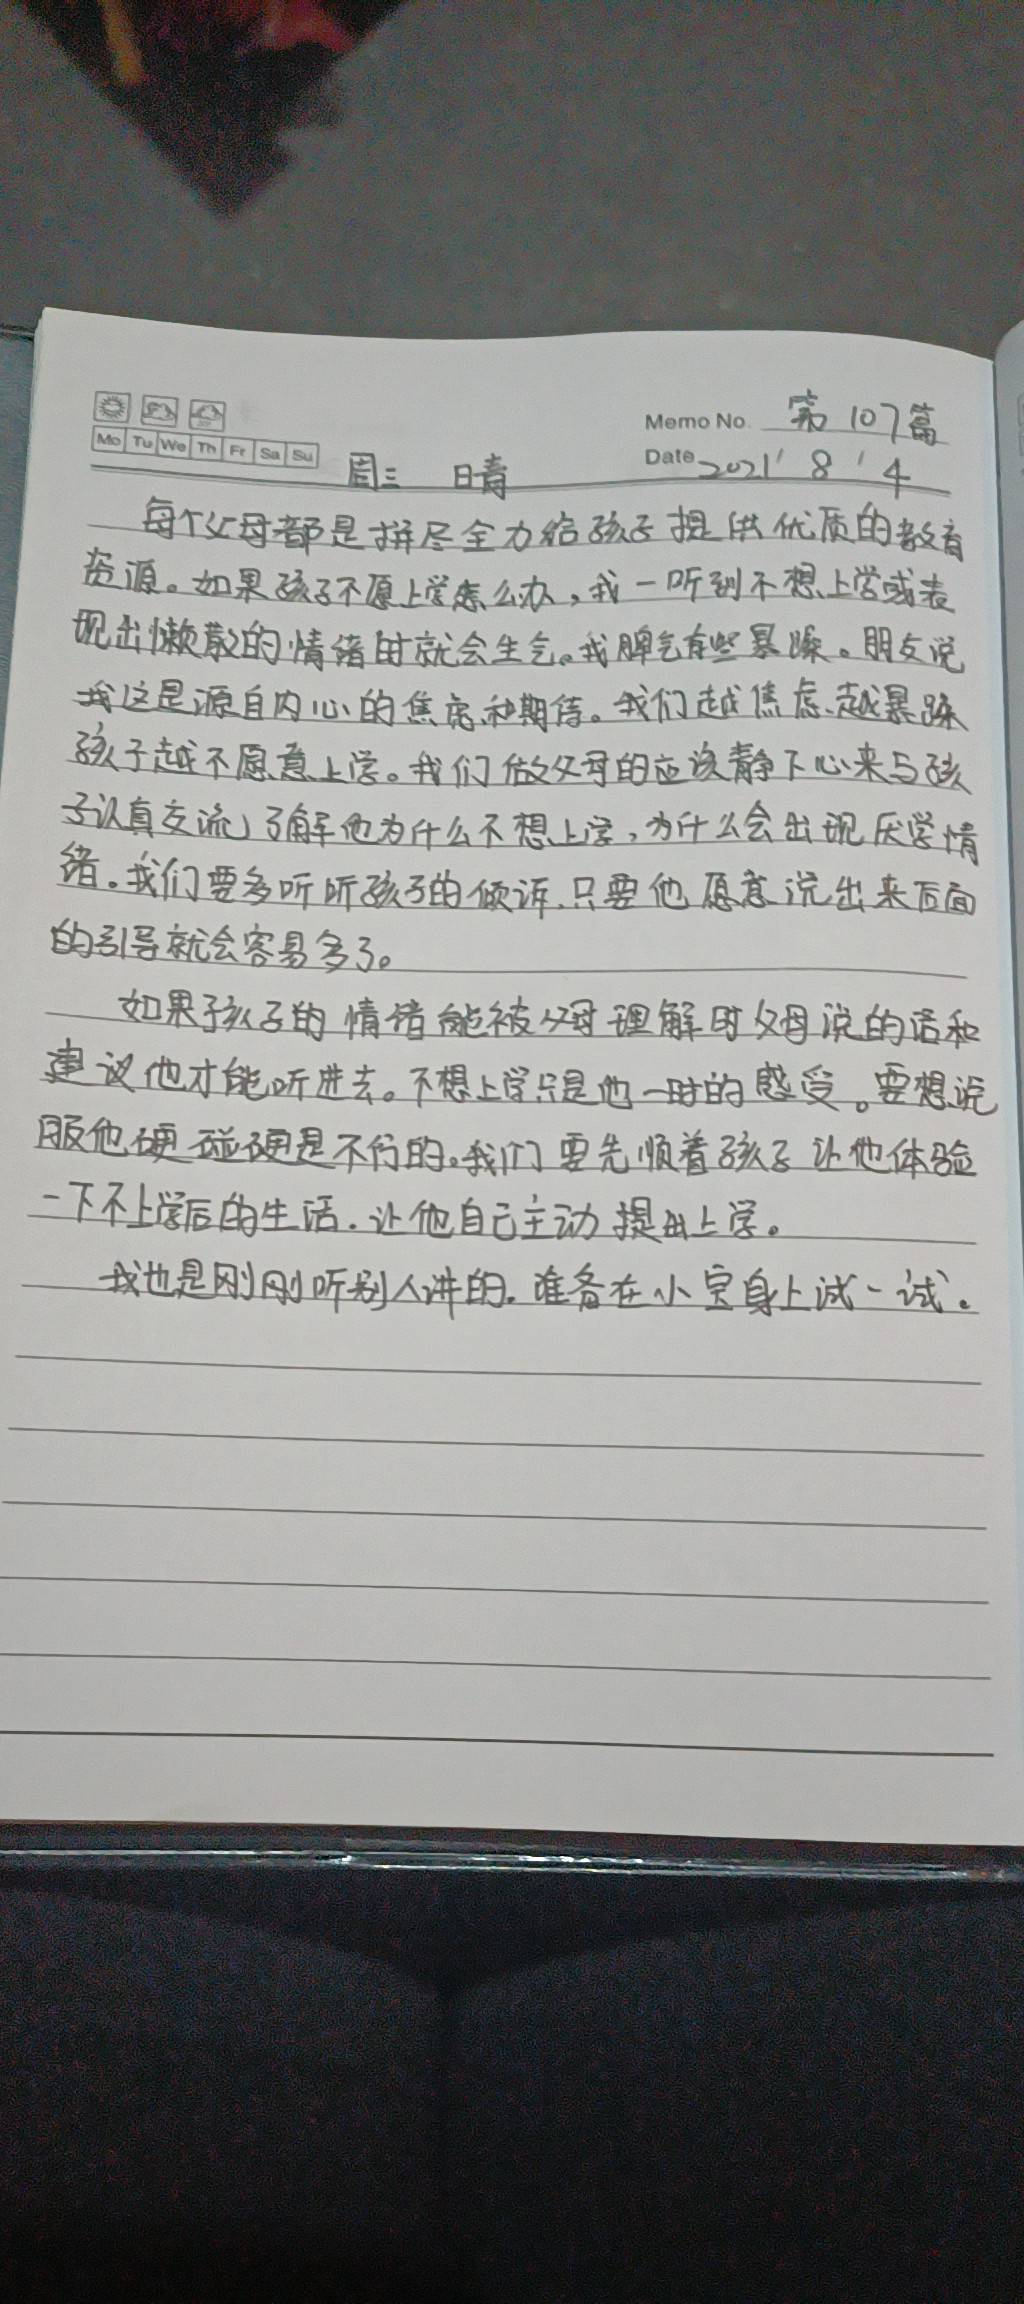 Memo No. 第107篇
Mo Tu We Th Fr Sa Su
周三 晴
Date 2021' 8 ' 4
每个父母都是拼尽全力给孩子提供优质的教育
资源。如果孩子不愿上学怎么办，我一听到不想上学或表
现出懒散的情绪时就会生气。我脾气有些暴躁。朋友说
我这是源自内心的焦虑和期待。我们越焦虑、越暴躁
孩子越不愿意上学。我们做父母的应该静下心来与孩
子认真交流，了解他为什么不想上学，为什么会出现厌学情
绪。我们要多听听孩子的倾诉，只要他愿意说出来后面
的引导就会容易多了。
如果孩子的情绪能被父母理解时父母说的话和
建议他才能听进去。不想上学只是他一时的感受。要想说
服他硬碰硬是不行的。我们要先顺着孩子让他体验
一下不上学后的生活。让他自己主动提出上学。
我也是刚刚听别人讲的。准备在小宝身上试一试。